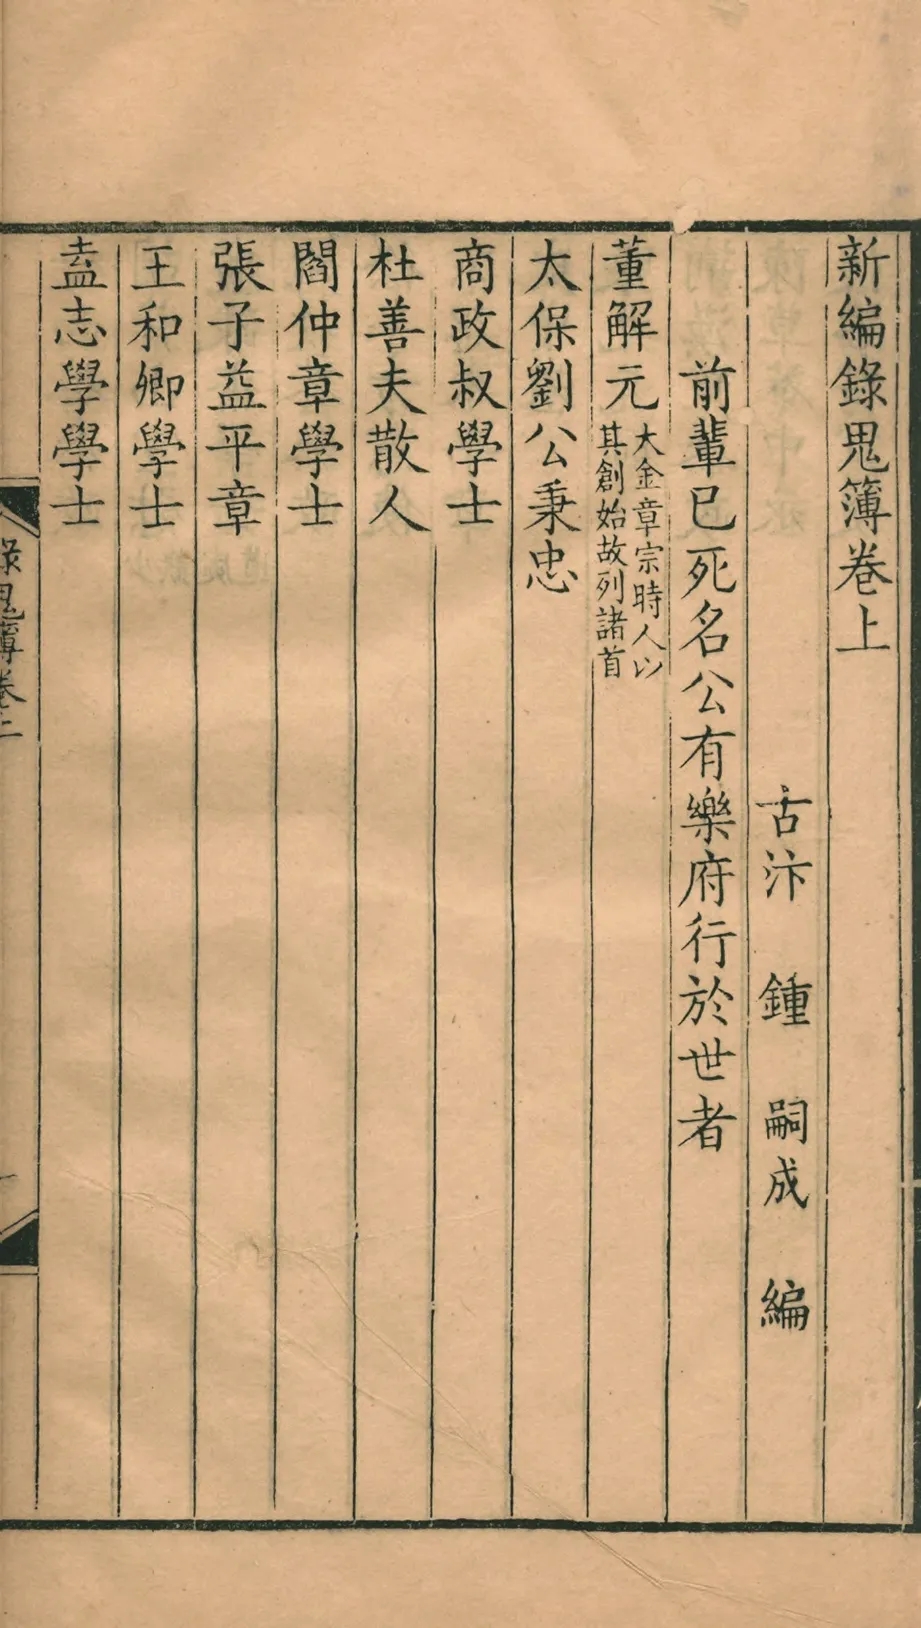 新編錄鬼簿卷上
古汴 鍾 嗣成 編
前輩已死名公有樂府行於世者
董解元
大金章宗時人以
其創始故列諸首
太保劉公秉忠
商政叔學士
杜善夫散人
閻仲章學士
張子益平章
王和卿學士
盍志學學士
錄鬼簿卷上
一